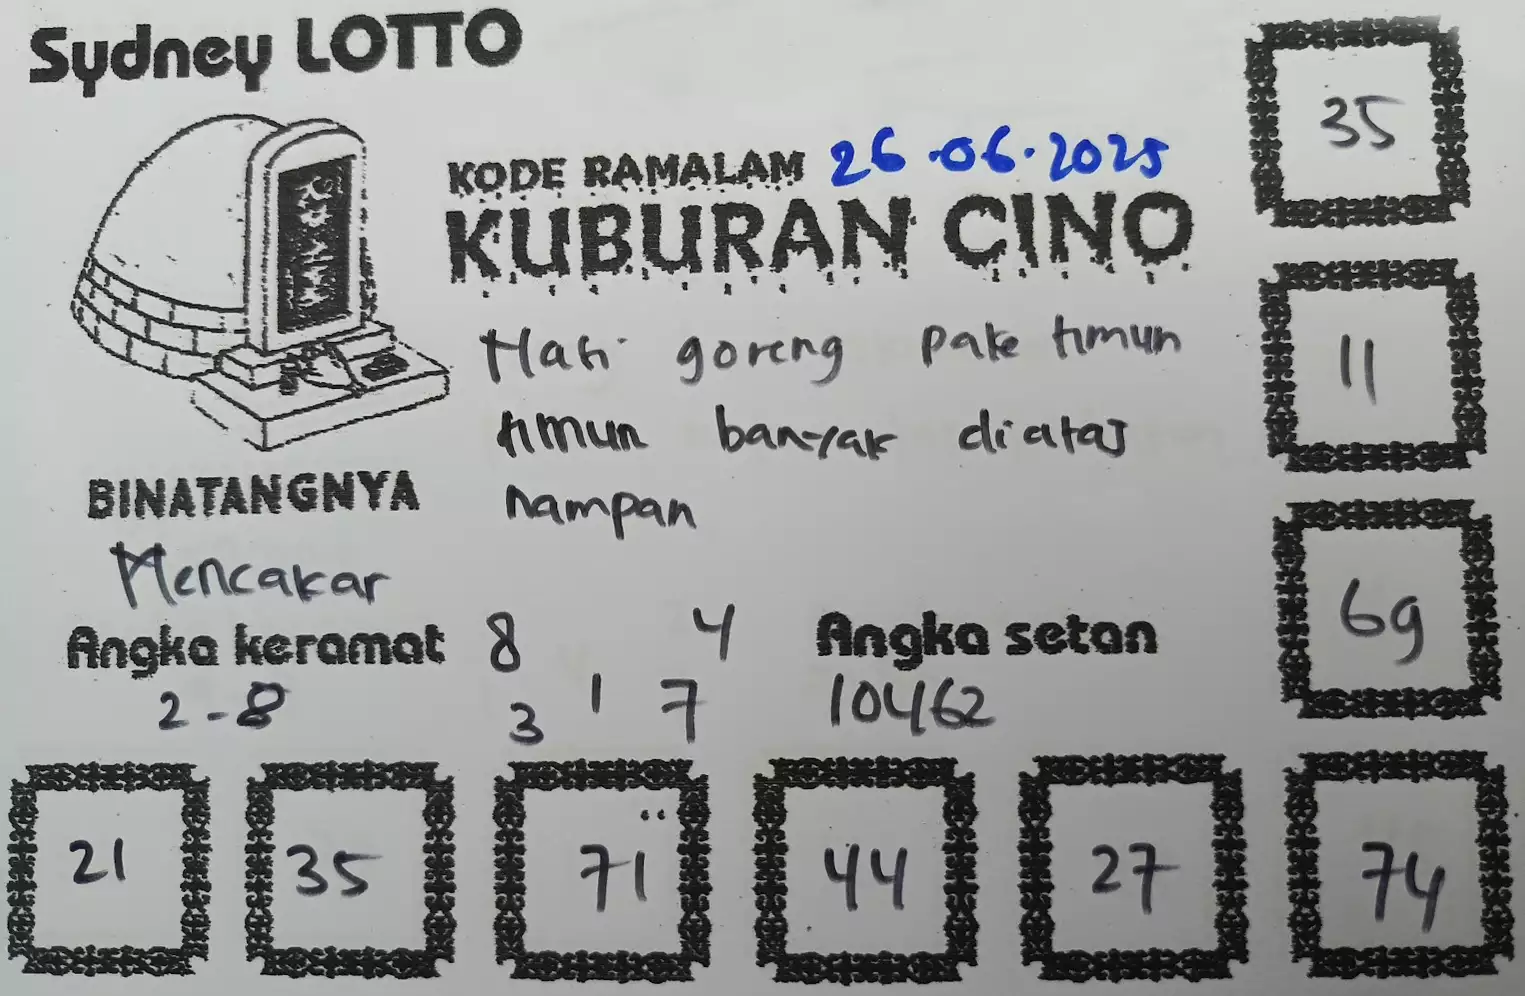 Sydney LOTTO
35
KODE RAMALAM 26.06.2025
KUBURAN CINO
Hati goreng pake timun
timun banyak diatas
nampan
11
BINATANGNYA
Mencakar
69
Angka keramat 8 4 Angka setan
2-8 3 1 7 10462
21 35 71 44 27 74